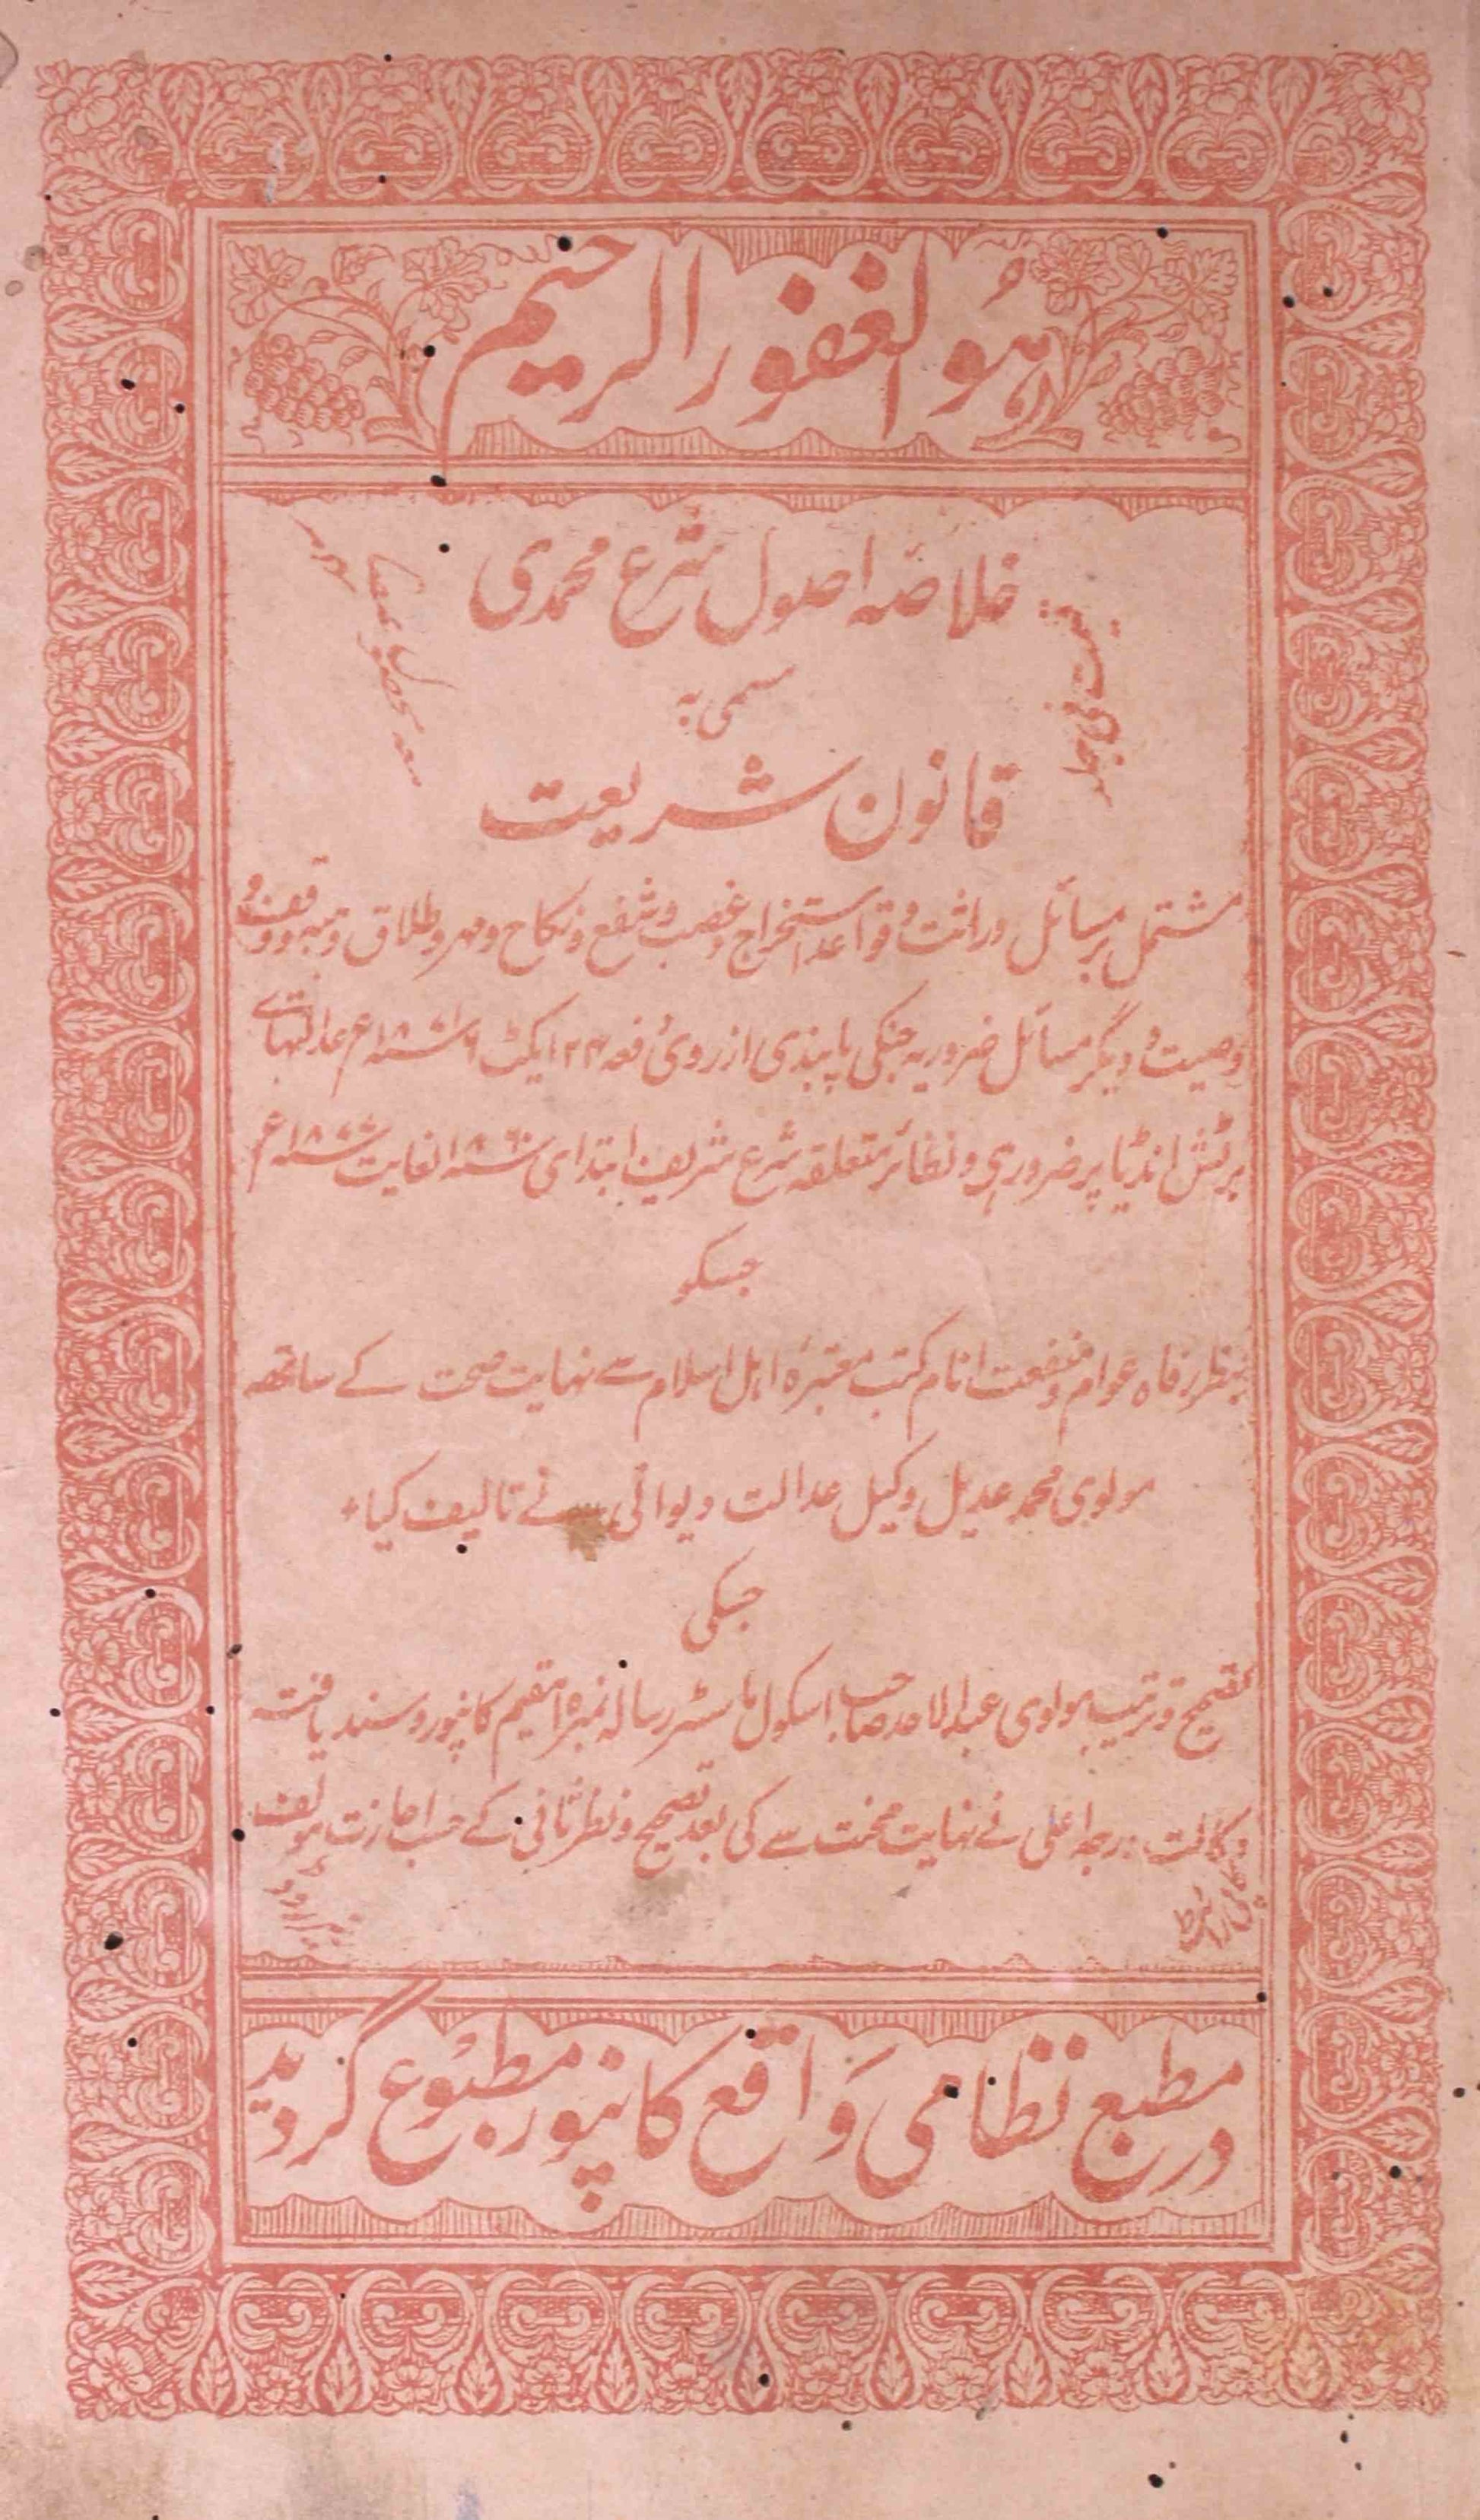 ہُو الغفور الرحیم
خلاصۂ اصول شرع محمدی
مسمی بہ
قانون شریعت
قیمت فی جلد
مشتمل بر مسائل وراثت و قواعد استخراج و غصب و شفع و نکاح و مہر و طلاق و ہبہ و وقف و
وصیت و دیگر مسائل ضروریہ جنکی پابندی از روئ دفعہ ۲۴ ایکٹ ۶ ۱۸۷۱ء عدالتہاے
برٹش انڈیا پر ضرور ہی و نظائر متعلقہ شرع شریف ابتدای ۱۸۶۰ لغایت ۱۸۷۷ء
جسکو
بنظر رفاہ عوام و منفعت انام کتب معتبرۂ اہل اسلام سے نہایت صحت کے ساتھ
مولوی محمد عدیل وکیل عدالت دیوانی نے تالیف کیا
جسکی
تنقیح و ترتیب مولوی عبد الاحد صاحب اسکول ماسٹر رسالہ نمبر ۱۵ مقیم کانپور و سند یافتہ
وکالت درجہ اعلی نے نہایت محنت سے کی بعد تصحیح و نظر ثانی کے حسب اجازت مولف
کاپی رائٹ
در مطبع نظامی واقع کانپور مطبوع گردید